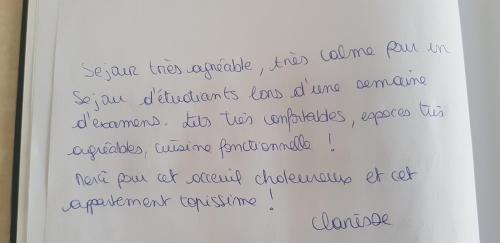 Sejour très agréable, très calme pour un
Sejour d'étudiants lors d'une semaine
d'examens. Lits très confortables, espaces très
agréables, cuisine fonctionnelle !
Merci pour cet acceuil chaleureux et cet
appartement topissime !
Clarisse